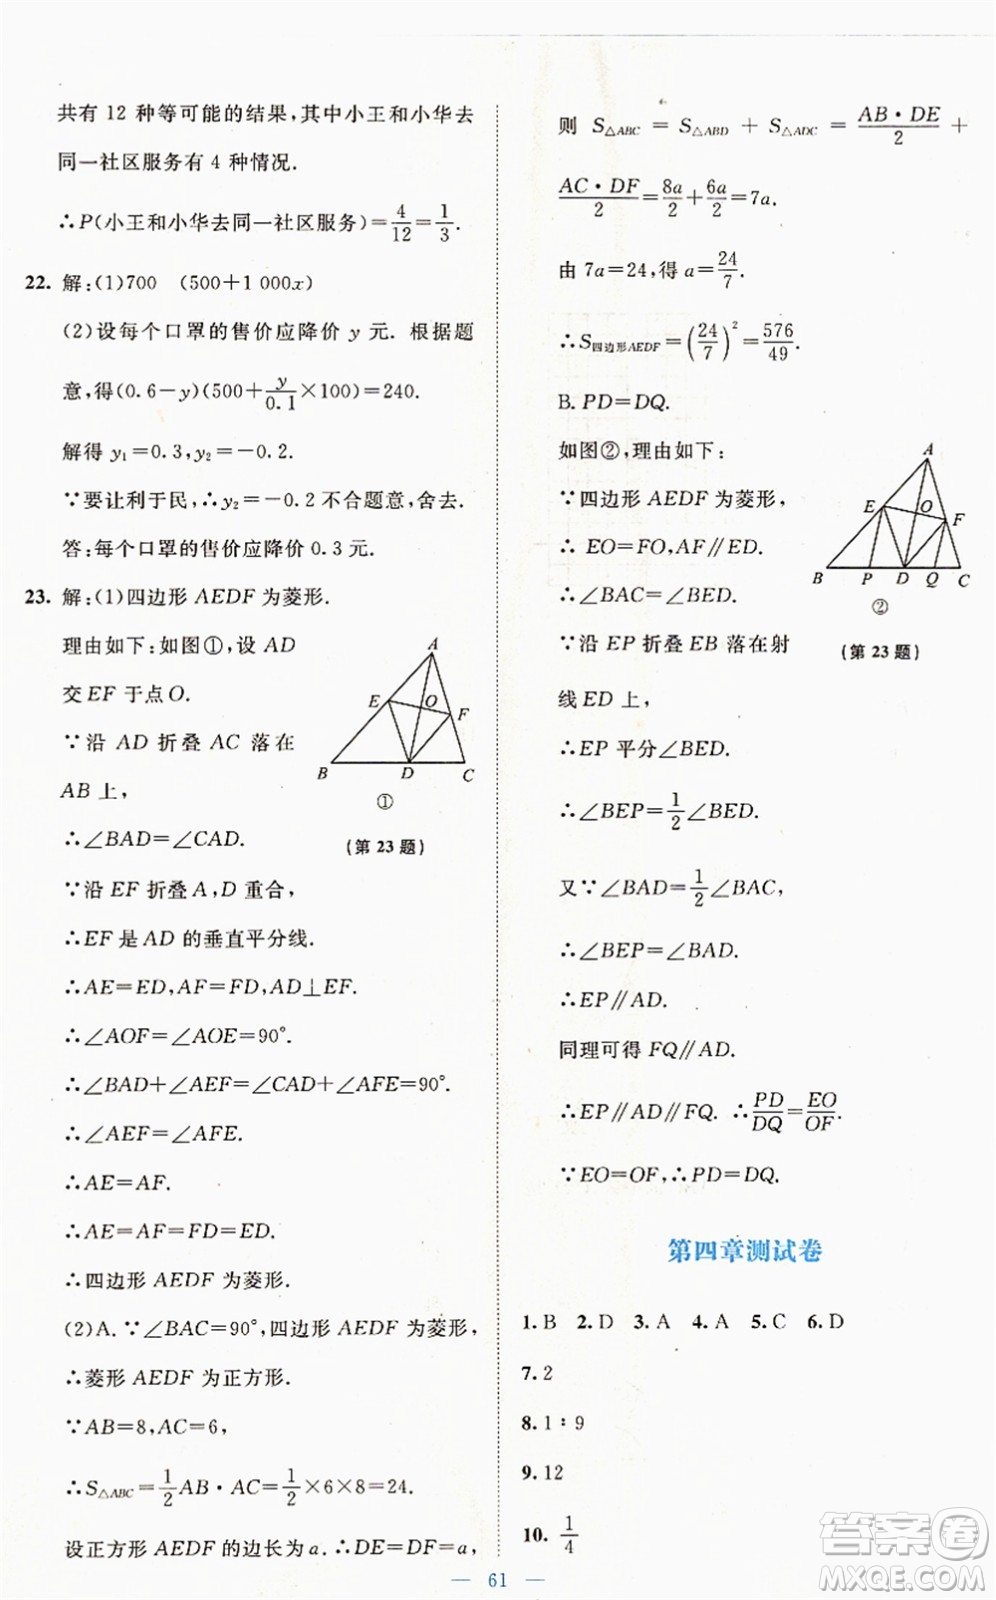 共有 12 种等可能的结果,其中小王和小华去
同一社区服务有 4 种情况.
∴P(小王和小华去同一社区服务)=4/12=1/3.
22. 解:(1)700 (500+1 000x)
(2)设每个口罩的售价应降价 y 元. 根据题
意,得(0.6-y)(500+y/0.1×100)=240.
解得 y₁=0.3,y₂=-0.2.
∵要让利于民,∴y₂=-0.2 不合题意,舍去.
答:每个口罩的售价应降价 0.3 元.
23. 解:(1)四边形 AEDF 为菱形.
理由如下:如图①,设 AD
交 EF 于点 O.
∵沿 AD 折叠 AC 落在
AB 上,
∴∠BAD=∠CAD.
∵沿 EF 折叠 A,D 重合,
∴EF 是 AD 的垂直平分线.
∴AE=ED,AF=FD,AD⊥EF.
∴∠AOF=∠AOE=90°.
∴∠BAD+∠AEF=∠CAD+∠AFE=90°.
∴∠AEF=∠AFE.
∴AE=AF.
∴AE=AF=FD=ED.
∴四边形 AEDF 为菱形.
(2)A.∵∠BAC=90°,四边形 AEDF 为菱形,
∴菱形 AEDF 为正方形.
∵AB=8,AC=6,
∴S△ABC=1/2AB·AC=1/2×6×8=24.
设正方形 AEDF 的边长为 a.∴DE=DF=a,
A
E
O
F
B
D
C
①
(第 23 题)
则 S△ABC = S△ABD + S△ADC = AB·DE/2 +
AC·DF/2=8a/2+6a/2=7a.
由 7a=24,得 a=24/7.
∴S四边形AEDF=(24/7)²=576/49.
B. PD=DQ.
如图②,理由如下:
∵四边形 AEDF 为菱形,
∴ EO=FO,AF∥ED.
∴∠BAC=∠BED.
∵沿 EP 折叠 EB 落在射
线 ED 上,
∴EP 平分∠BED.
∴∠BEP=1/2∠BED.
又∵∠BAD=1/2∠BAC,
∴∠BEP=∠BAD.
∴EP∥AD.
同理可得 FQ∥AD.
∴EP∥AD∥FQ. ∴PD/DQ=EO/OF.
∵EO=OF,∴PD=DQ.
A
E
O
F
B
P
D
Q
C
②
(第 23 题)
第四章测试卷
1. B 2. D 3. A 4. A 5. C 6. D
7. 2
8. 1∶9
9. 12
10. 1/4
— 61 —
答案卷
MXQE.COM